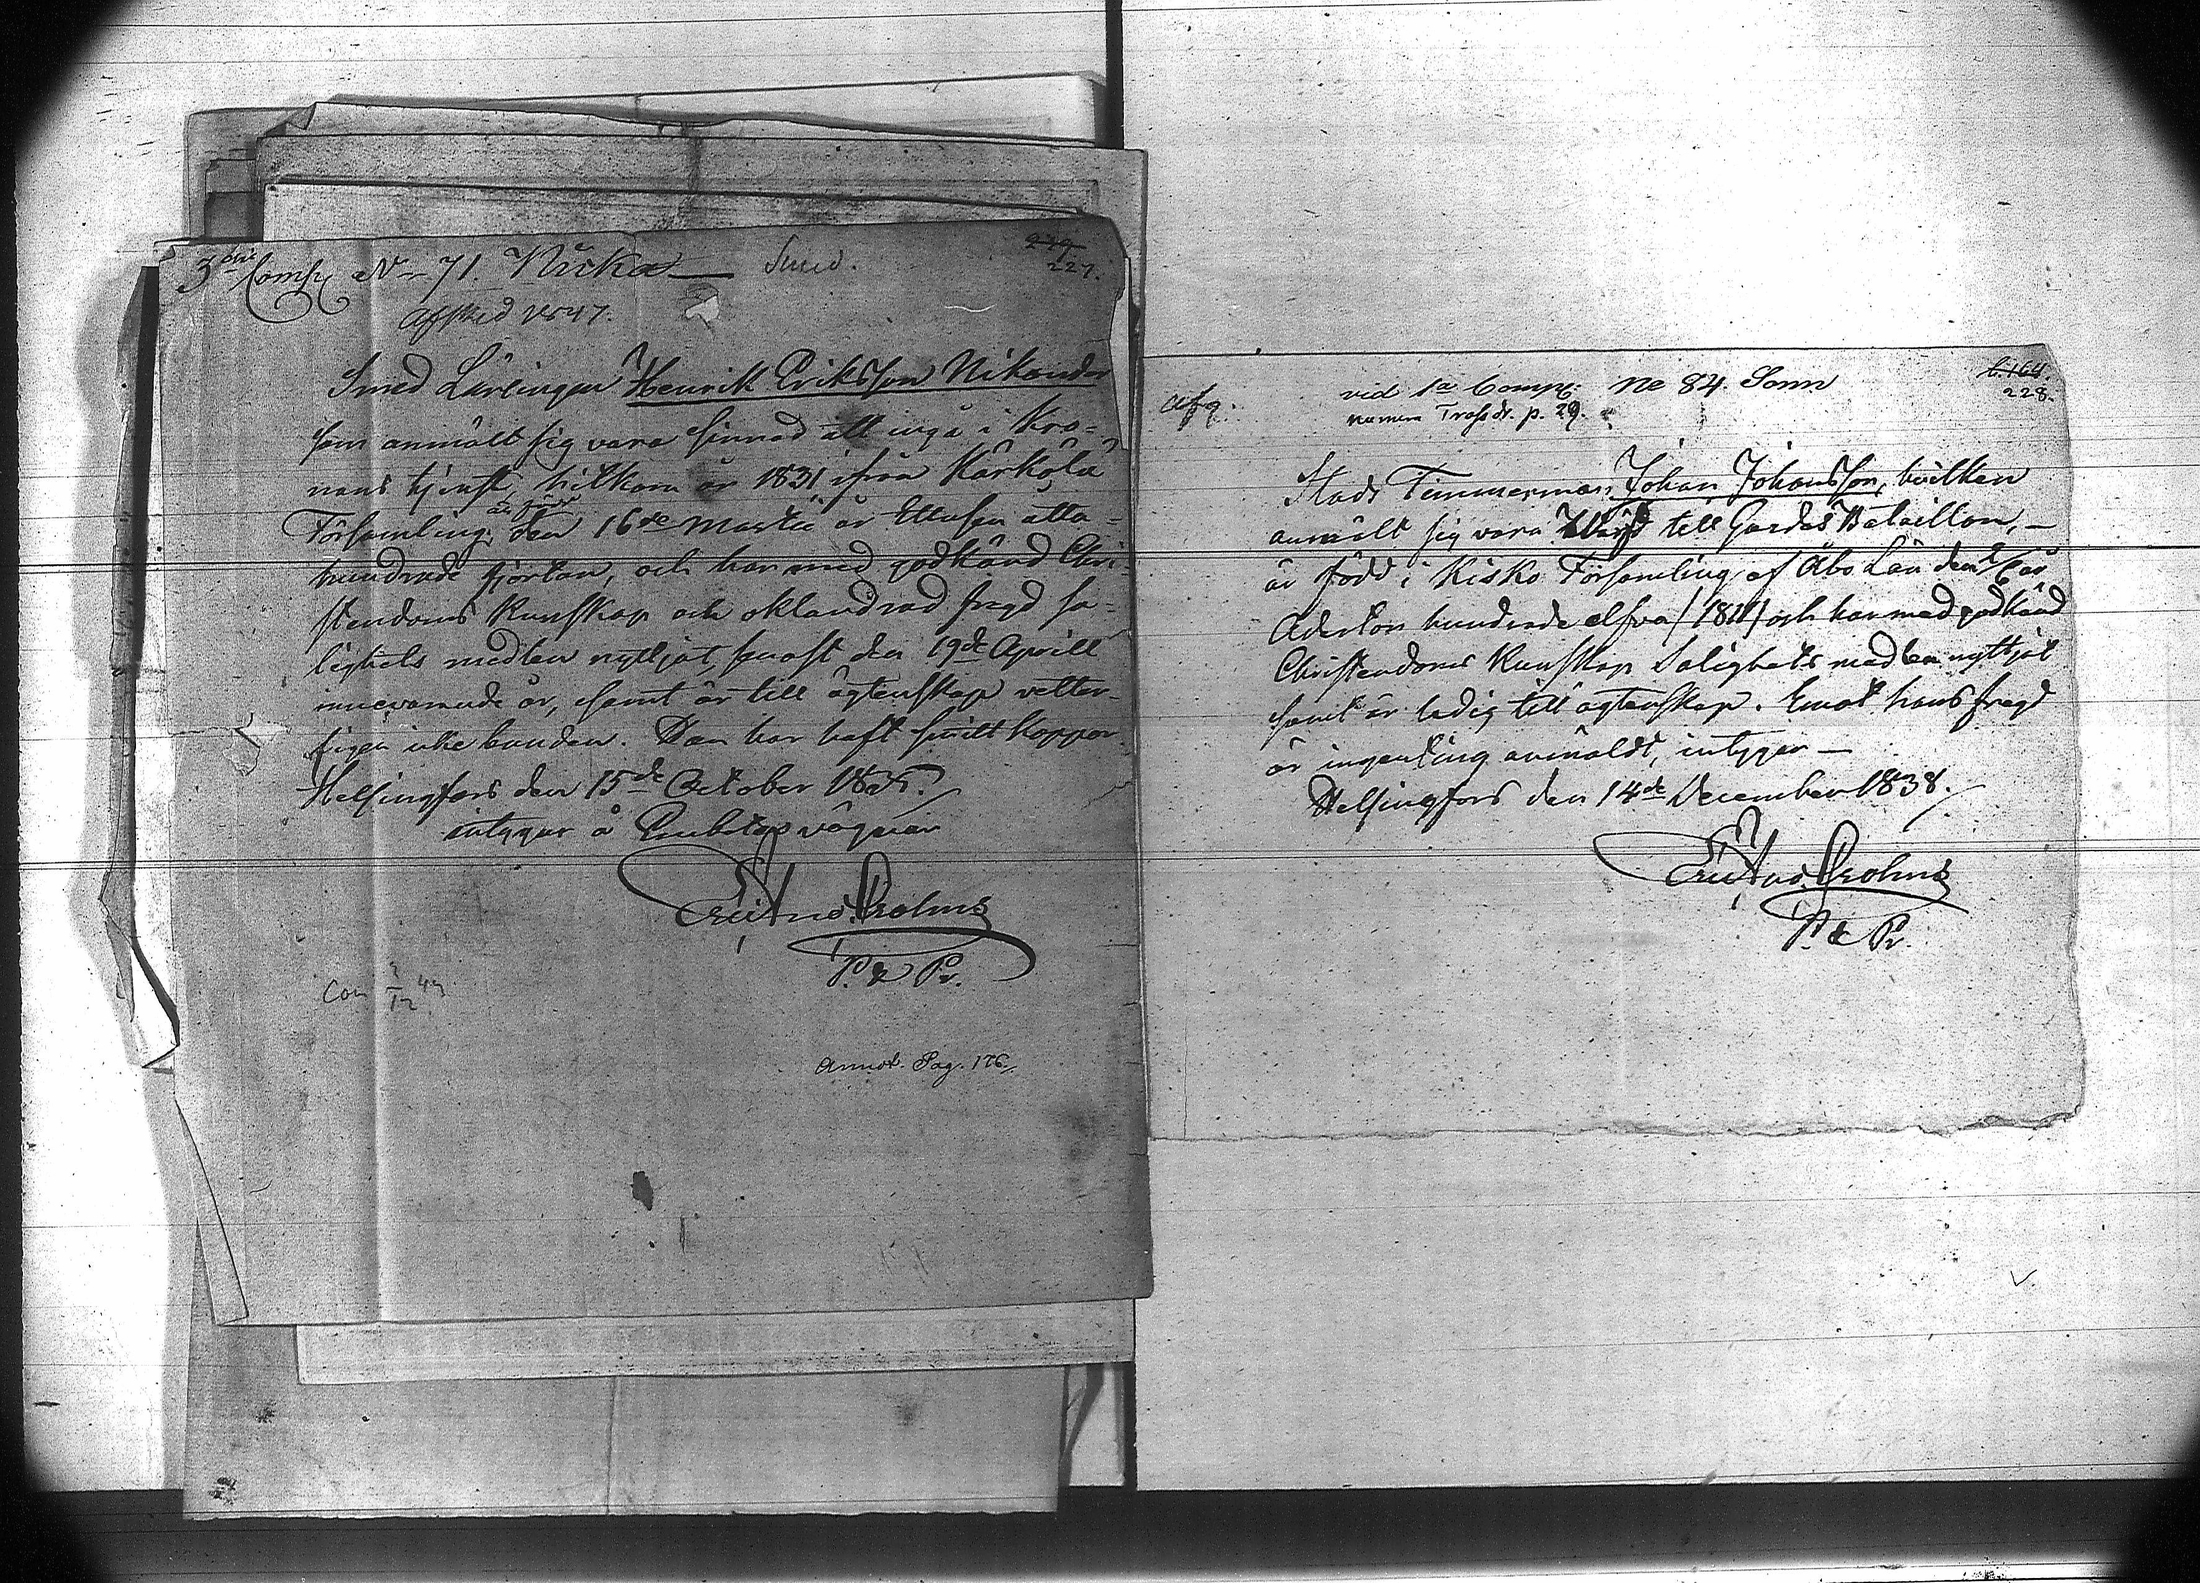 3die Comp. No 71. Nicka — Smed.
227.
Afsked 1847.
Smed Lärlingen Henrik Eriksson Nikander
som anmält sig vara sinnad att ingå i Kro-
nans tjenst, hitkom år 1831 ifrån Kärkölä
Församling, är född
den 16de Martii år Ettusen åtta-
hundrade fjorton, och har med godkänd Chri-
stendoms Kunskap och oklandrad fregd sa-
lighets medlen nyttjat, senast den 19de Aprill
innevarande år, samt är till ägtenskap vetter-
ligen icke bunden. Han har haft smittkoppor.
Helsingfors den 15de October
intygar å Embetes vägnar
Gust. And. Crohns
P. & Pr.
Con 47
Annot. Pag. 176.
228.
afg. vid 1a Comp: No 84. Sonn
numera Trossdr. p. 29.
Stads Timmerman Johan Johansson, hvilken
anmält sig vara till Gardes Bataillon, —
är född i Kisko Församling af Åbo Län den år
Aderton hundrade elfva /1811/ och har med godkänd
Christendoms Kunskap Salighets medlen nyttjat
samt är ledig till ägtenskap. Emot hans fregd
är ingenting anmäldt, intygar —
Helsingfors den 14de December 1838.
Gust. And. Crohns
P. & Pr.